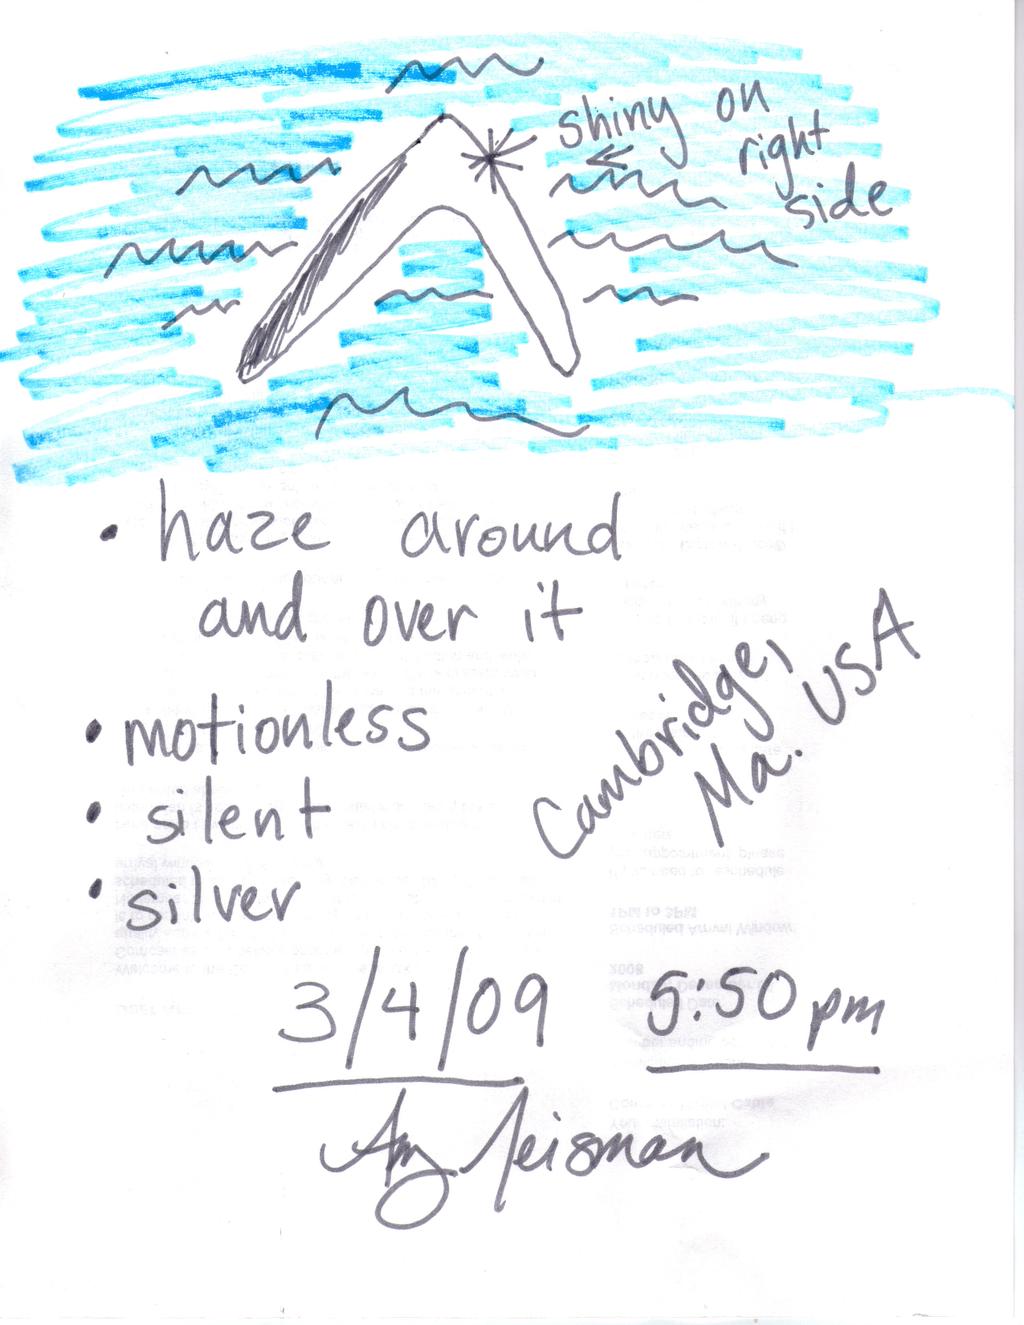 shiny on
right
side
• haze around
and over it
• motionless
• silent
• silver
Cambridge,
Ma. USA
3/4/09 5:50 pm
Amy